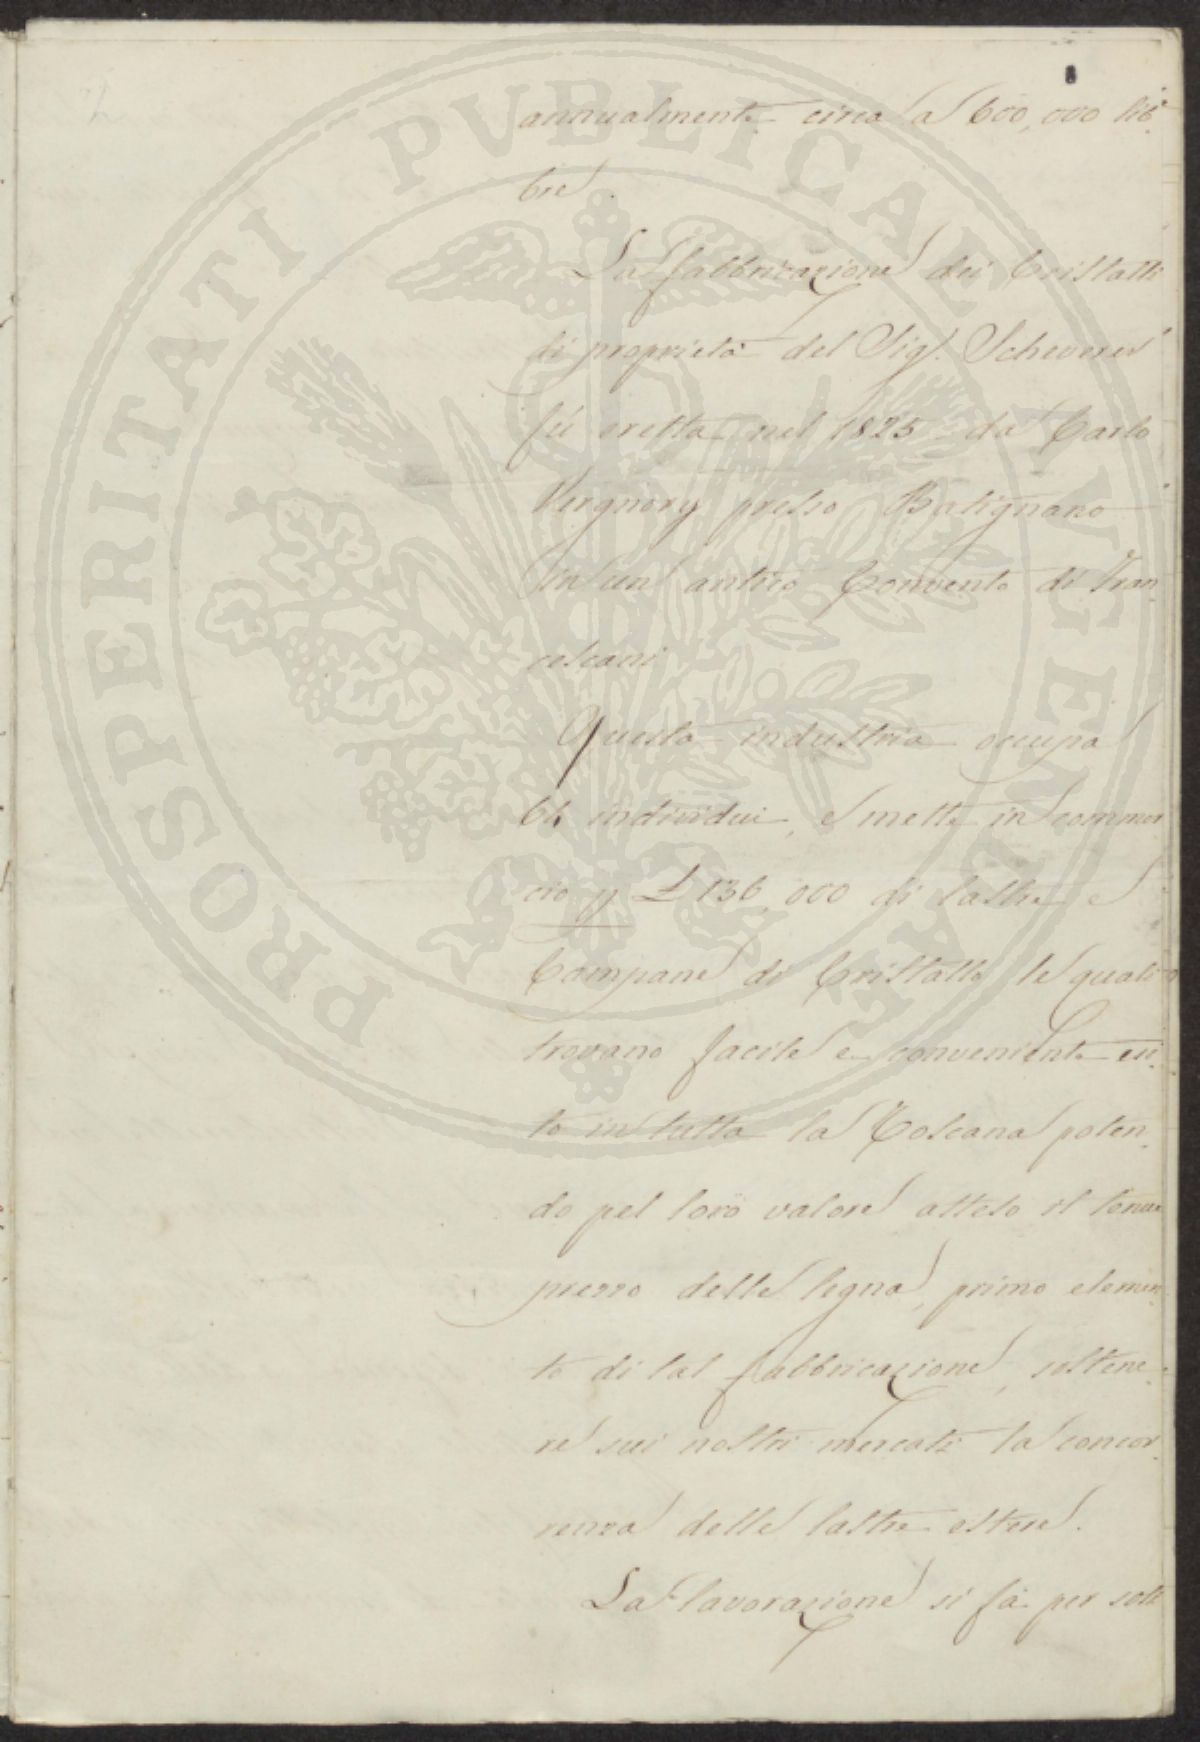 annualmente circa a 600,000 lib-
bre.
La fabbricazione dei Cristalli
di proprietà del Sig.r Scheveres
fù eretta nel 1825 da Carlo
Vergnory presso Batignano
in un antico Convento di Fran-
cescani
Questa industria occupa
64 individui, e mette in commer
cio p £ 136,000 di lastre e
Campane di Cristallo le quali
trovano facile e conveniente esi-
to in tutta la Toscana poten-
do pel loro valore atteso il tenue
prezzo delle legna, primo elemen-
to di tal fabbricazione, sostene-
re sui nostri mercati la concor
renza delle lastre estere.
La lavorazione si fà per soli
PROSPERITATI PVBLICAE AVGENDAE